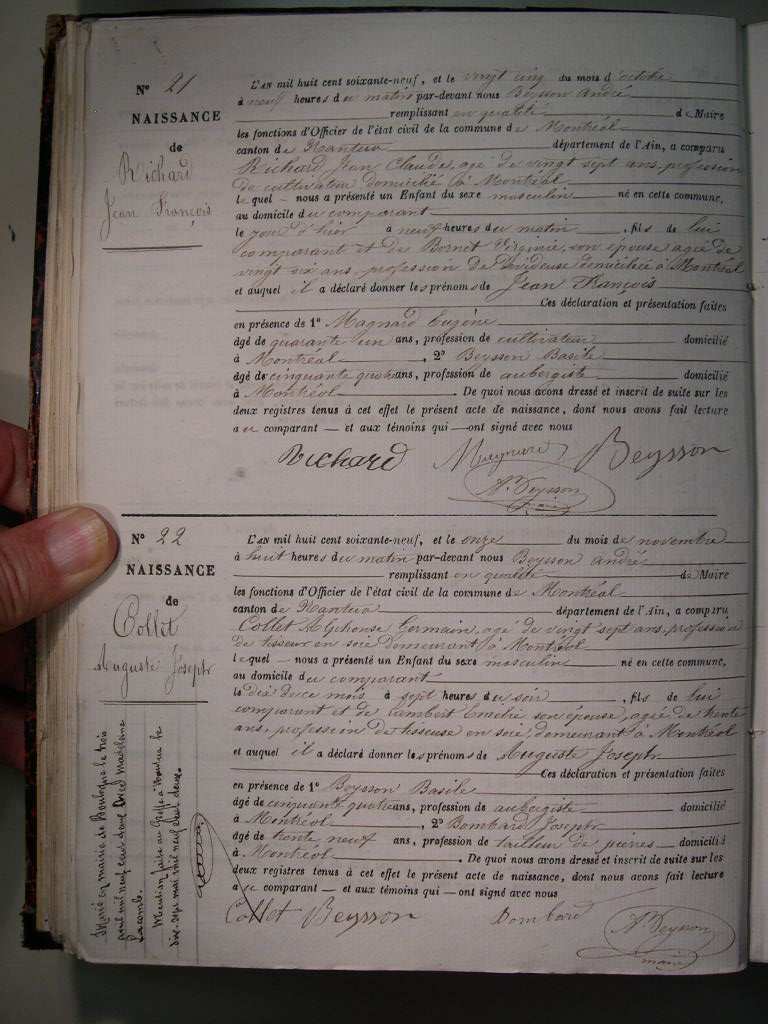 N° 21
NAISSANCE
de
Richard
Jean François
L'AN mil huit cent soixante-neuf, et le vingt cinq du mois d'octobre
à neuf heures du matin par-devant nous Beysson André
remplissant en qualité de Maire
les fonctions d'Officier de l'état civil de la commune de Montréal
canton de Nantua département de l'Ain, a comparu
Richard Jean Claude, agé de vingt sept ans, profession
de cultivateur domicilié à Montréal
lequel — nous a présenté un Enfant du sexe masculin né en cette commune,
au domicile du comparant
le jour d'hier à neuf heures du matin, fils de lui
comparant et de Bornet Virginie, son épouse agée de
vingt six ans, profession de Dévideuse domiciliée à Montréal
et auquel il a déclaré donner les prénoms de Jean François
Ces déclaration et présentation faites
en présence de 1° Magnard Eugène
âgé de quarante un ans, profession de cultivateur domicilié
à Montréal, 2° Beysson Basile
âgé de cinquante quatre ans, profession de aubergiste domicilié
à Montréal. De quoi nous avons dressé et inscrit de suite sur les
deux registres tenus à cet effet le présent acte de naissance, dont nous avons fait lecture
au comparant — et aux témoins qui — ont signé avec nous
Richard Beysson
A. Beysson
maire
N° 22
NAISSANCE
de
Collet
Auguste Joseph
L'AN mil huit cent soixante-neuf, et le onze du mois de novembre
à huit heures du matin par-devant nous Beysson andré
remplissant en qualité de Maire
les fonctions d'Officier de l'état civil de la commune de Montréal
canton de Nantua département de l'Ain, a comparu
Collet Alphonse Germain, agé de vingt sept ans, profession
de tisseur en soie demeurant à Montréal
lequel — nous a présenté un Enfant du sexe masculin né en cette commune,
au domicile du comparant
le dix du ce mois à sept heures du soir, fils de lui
comparant et de Lambert Emélie son épouse, agée de trente
ans, profession de tisseuse en soie, demeurant à Montréal
et auquel il a déclaré donner les prénoms de Auguste Joseph
Ces déclaration et présentation faites
en présence de 1° Beysson Basile
âgé de cinquante quatre ans, profession de aubergiste domicilié
à Montréal, 2° Bombard Joseph
âgé de trente neuf ans, profession de tailleur de pierres domicilié
à Montréal. De quoi nous avons dressé et inscrit de suite sur les
deux registres tenus à cet effet le présent acte de naissance, dont nous avons fait lecture
au comparant — et aux témoins qui — ont signé avec nous
Collet Beysson Bombard A. Beysson
maire
Marié en mairie de Boulogne le trois
août mil neuf cent avec Madeleine
Lacombe.
Mention faite au Greffe à Nantua le
dix-sept mai mil neuf cent deux.